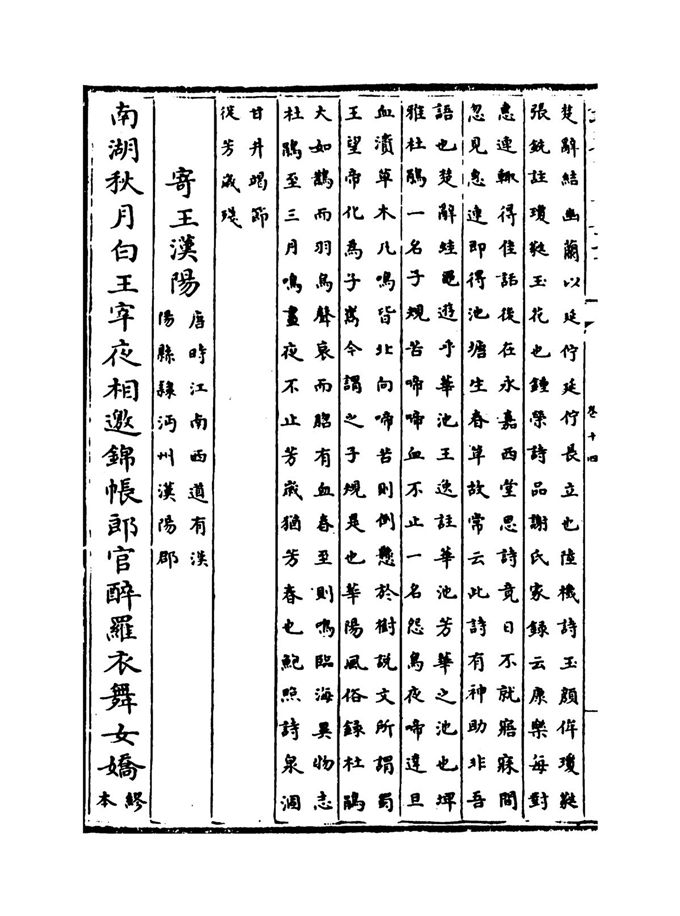 楚辭結幽蘭以延佇延佇長立也陸機詩玉顏侔瓊蕤
張銑註瓊蕤玉花也鍾嶸詩品謝氏家錄云康樂每對
惠連輒得佳話後在永嘉西堂思詩竟日不就寤寐間
忽見惠連即得池塘生春草故常云此詩有神助非吾
語也楚辭蛙黽遊乎華池王逸註華池芳華之池也埤
雅杜鵑一名子規苦啼啼血不止一名怨鳥夜啼達旦
血漬草木凡鳴皆北向啼苦則倒懸於樹說文所謂蜀
王望帝化為子巂今謂之子規是也華陽風俗錄杜鵑
大如鵲而羽烏聲哀而脗有血春至則鳴臨海異物志
杜鵑至三月鳴晝夜不止芳歲猶芳春也鮑照詩泉涸
甘井竭節
徙芳歲殘
寄王漢陽
唐時江南西道有漢
陽縣隸沔州漢陽郡
南湖秋月白王宰夜相邀錦帳郎官醉羅衣舞女嬌
繆
本
卷十四